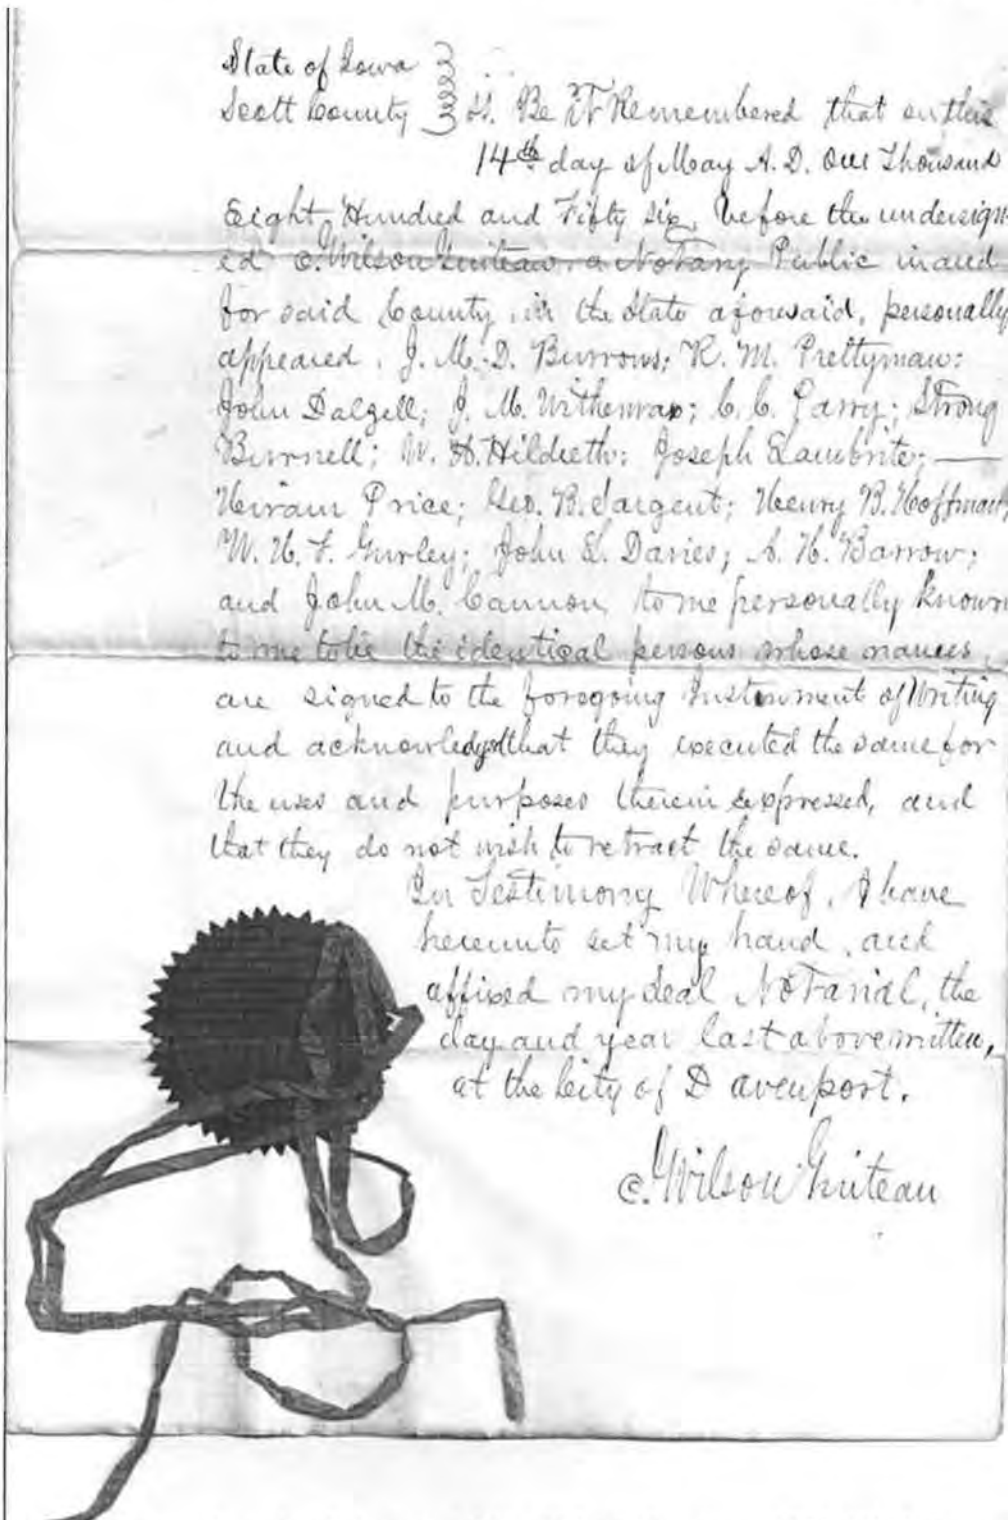 State of Iowa
Scott County ss. Be It Remembered that on this
14th day of May A. D. One Thousand
Eight Hundred and Fifty six, before the undersign-
ed C. Wilson Guiteau, a Notary Public in and
for said County, in the State aforesaid, personally
appeared, J. M. D. Burrows; R. M. Prettyman;
John Dalzell; J. M. Witherwax; C. C. Parry; Strong
Burnell; W. H. Hildreth; Joseph Lambrite; —
Hiram Price; Geo. B. Sargent; Henry B. Hoffman;
W. H. F. Gurley; John L. Davies; A. H. Barrow;
and John M. Cannon, to me personally known
to me to be the identical persons whose names,
are signed to the foregoing Instrument of Writing
and acknowledged that they executed the same for
the uses and purposes therein expressed, and
that they do not wish to retract the same.
In Testimony Whereof, I have
hereunto set my hand, and
affixed my Seal Notarial, the
day and year last above written,
at the City of Davenport.
C. Wilson Guiteau